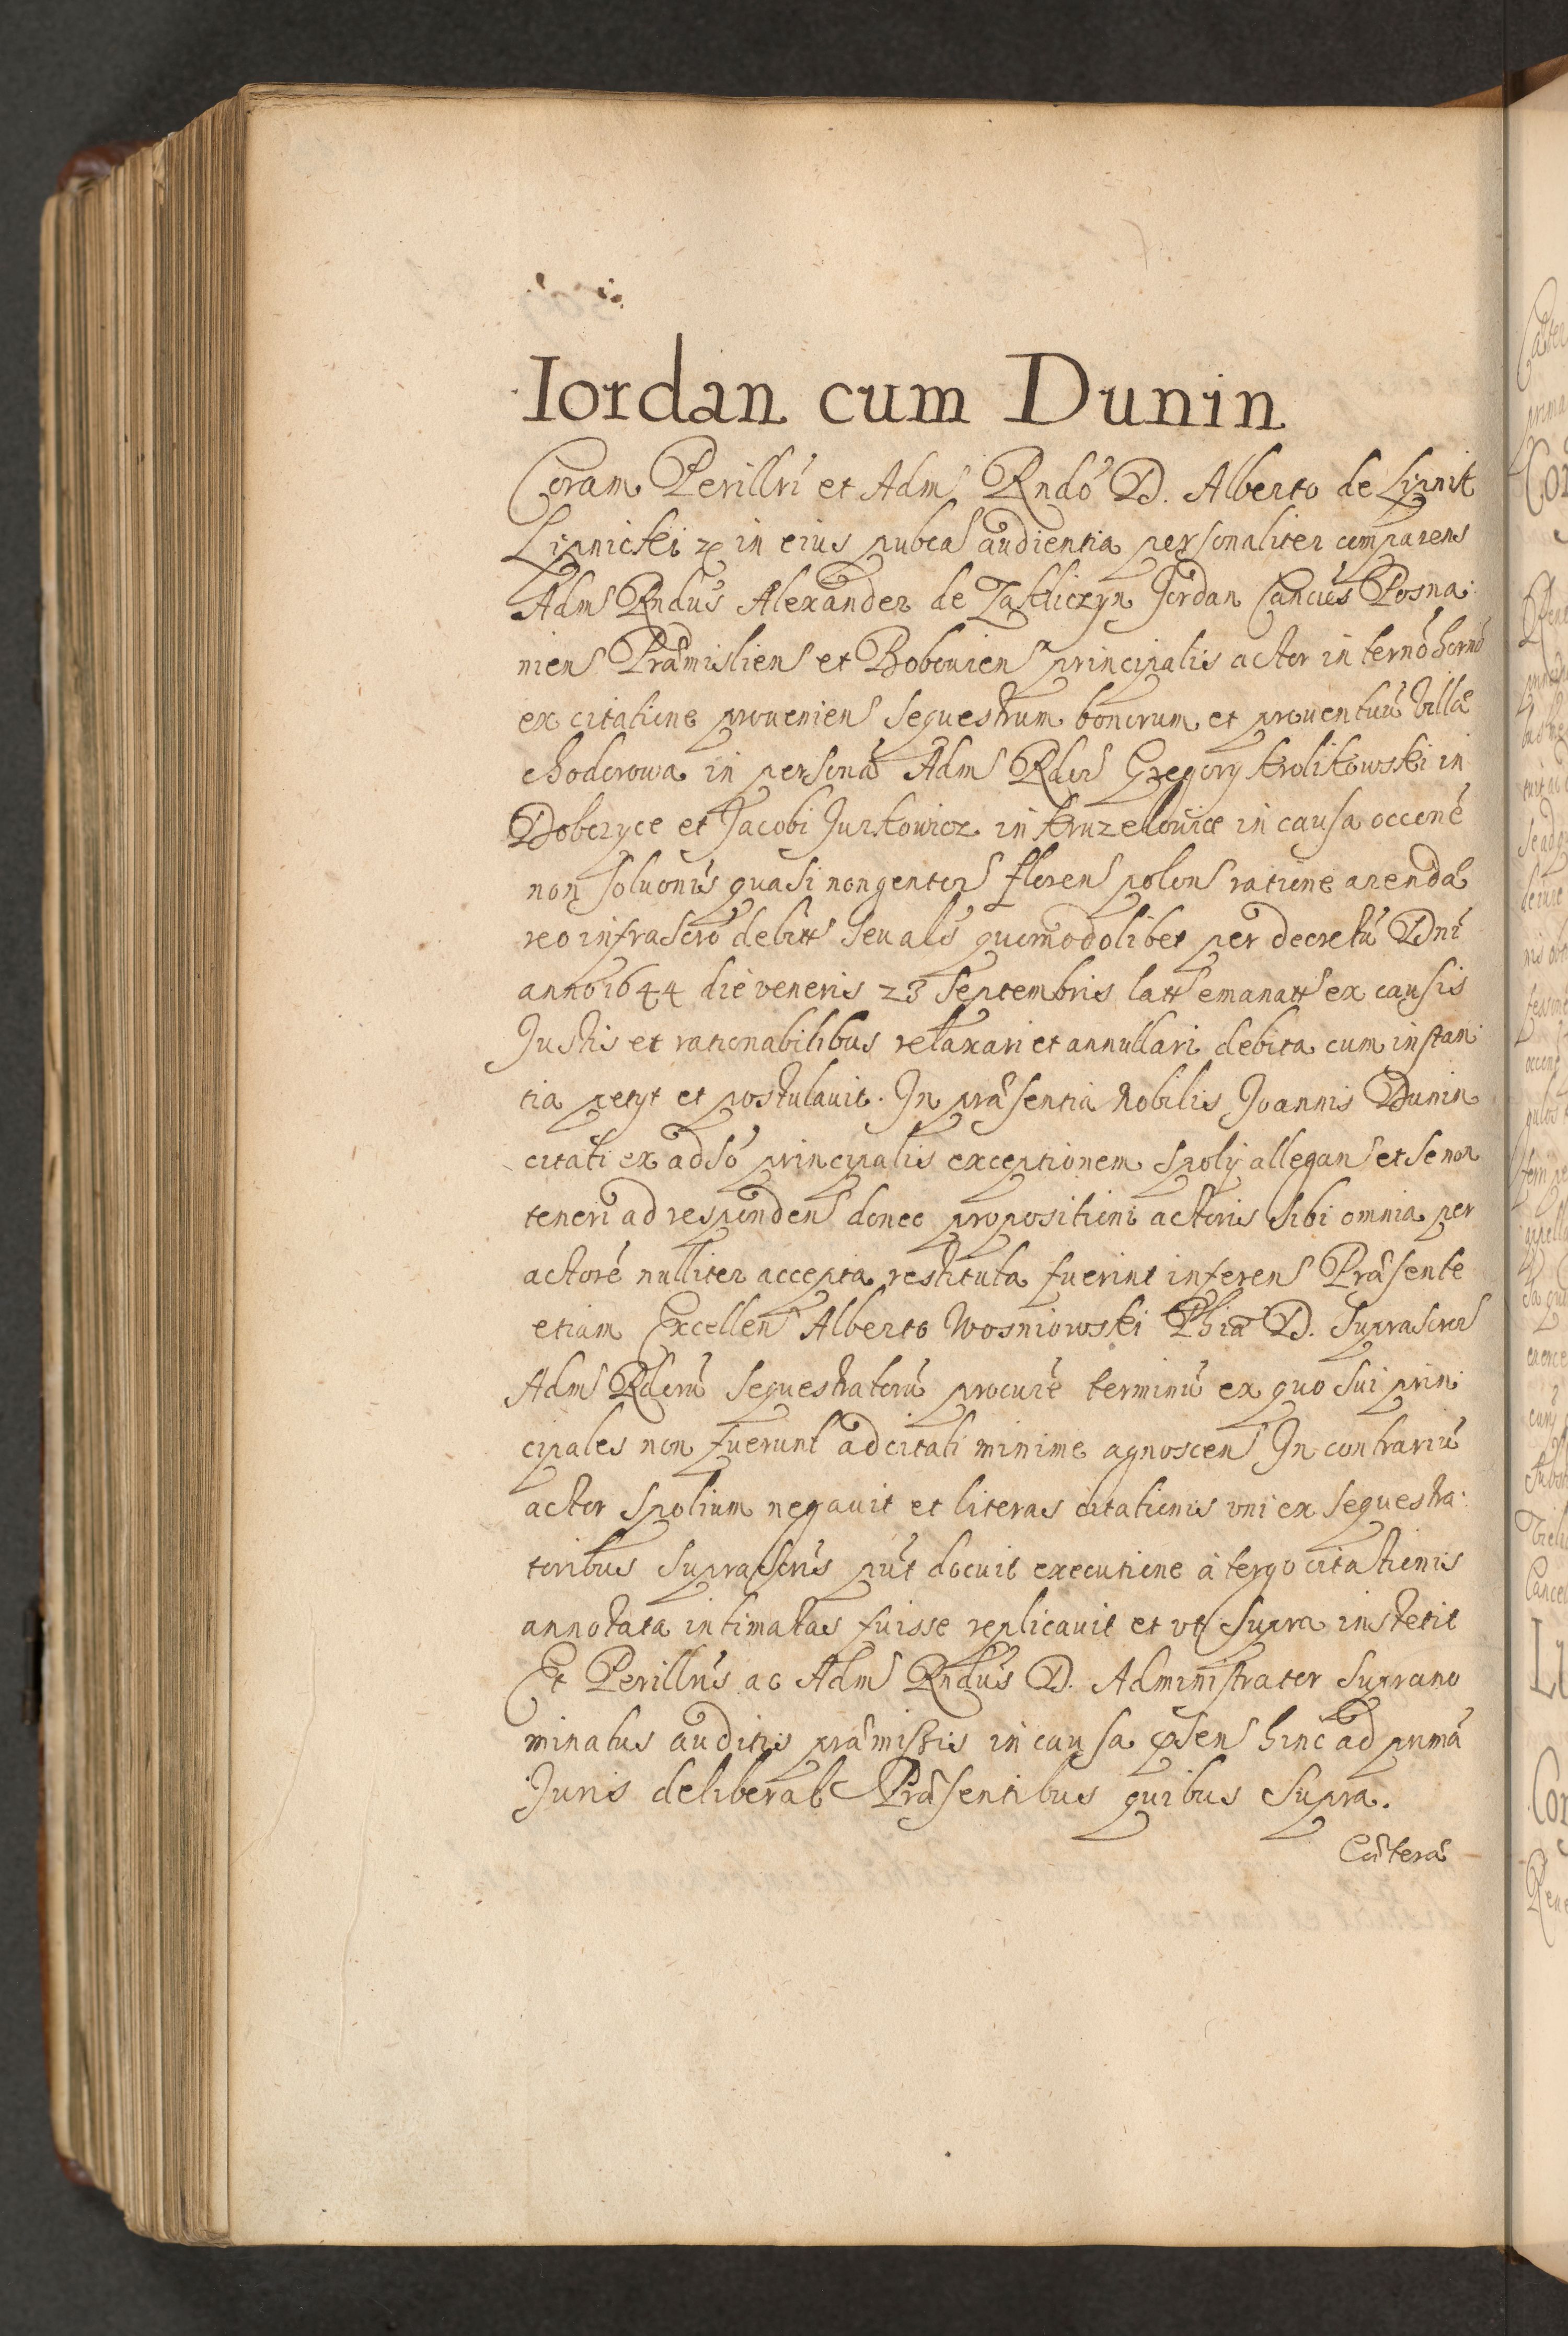 Iordan cum Dunin
Coram Perillri et Adm Rndo D. Alberto de Lipnik
Lipnicki in eius pubca audientia personaliter comparens
Adm Rndus Alexander de Zakliczyn Jordan Cancus Posna:
nien Præmislien et Bobovien principalis actor in termo horno
ex citatione provenien sequestrum bonorum et proventuu villæ
chodorowa in persona Adm Rdor Gregory Krolikowski in
Dobczyce et Jacobi Jurkowicz in Kruzelowice in causa occone
non solvonis quasi nongentor floren polon ratione arendæ
reo infrascro debitt seu als quomodolibet per decretu Dni
anno 1644 die veneris 23 Septembris latt emanatt ex causis
Justis et rationabilibus relaxari et annullari debita cum instan:
tia petyt et postulavit. In præsentia Nobilis Joannis Dunin
citati ex adso principalis exceptionem spoly allegan et se non
teneri ad responden donec propositioni actoris sibi omnia per
actore nulliter accepta restituta fuerint inferen Præsente
etiam Excellen Alberto Wosniowski Phiæ D. Suprascror
Adm Rdoru sequestratoru procure terminu ex quo sui prin:
cipales non fuerunt adcitati minime agnoscen In contrariu
actor spolium negavit et literas citationis vni ex sequestra:
toribus suprascris put docuit executione à tergo citationis
annotata intimatas fuisse replicavit et vt supra institit
Et Perillris ac Adm Rndus D. Administrator suprano
minatus auditis præmissis in causa psen hinc ad prima
Juris deliberab Præsentibus quibus supra.
Cæteræ